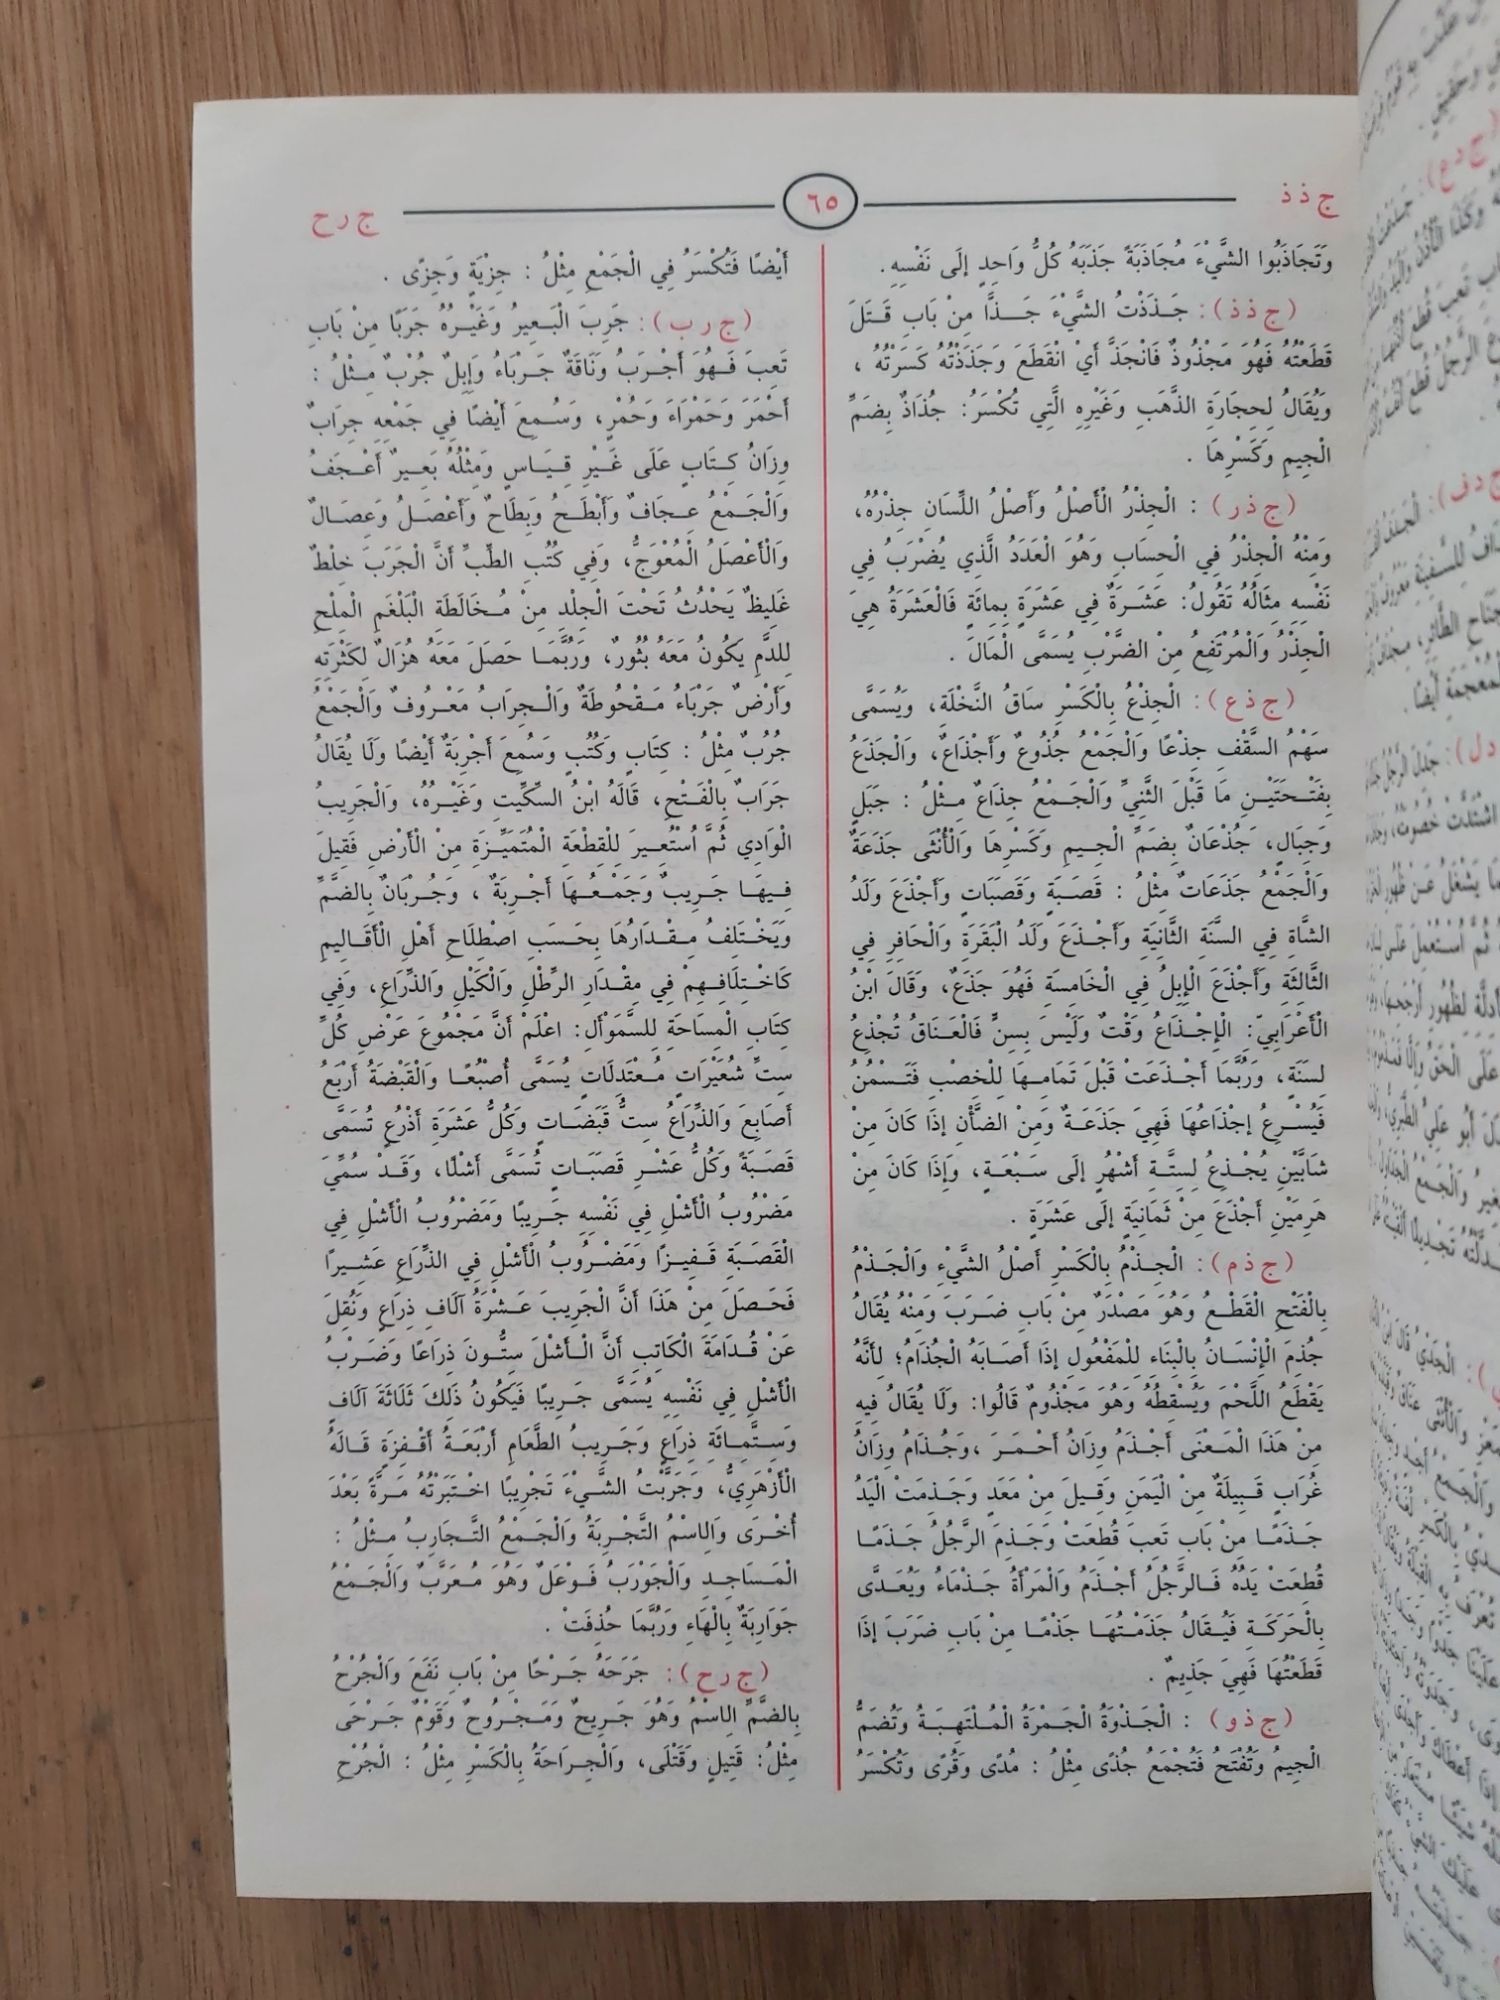 ج ذ ذ
٦٥
ج ر ح
وَتَجَاذَبُوا الشَّيْءَ مُجَاذَبَةً جَذَبَهُ كُلُّ وَاحِدٍ إلَى نَفْسِهِ .
(ج ذ ذ): جَذَذْتُ الشَّيْءَ جَذًّا مِنْ بَابِ قَتَلَ
قَطَعْتُهُ فَهُوَ مَجْذُوذٌ فَانْجَذَّ أَيْ انْقَطَعَ وَجَذَذْتُهُ كَسَرْتُهُ ،
وَيُقَالُ لِحِجَارَةِ الذَّهَبِ وَغَيْرِهِ الَّتِي تُكْسَرُ: جُذَاذٌ بِضَمِّ
الْجِيمِ وَكَسْرِهَا .
(ج ذ ر) : الْجِذْرُ الْأَصْلُ وَأَصْلُ اللِّسَانِ جِذْرُهُ،
وَمِنْهُ الْجِذْرُ فِي الْحِسَابِ وَهُوَ الْعَدَدُ الَّذِي يُضْرَبُ فِي
نَفْسِهِ مِثَالُهُ تَقُولُ: عَشَرَةٌ فِي عَشَرَةٍ بِمِائَةٍ فَالْعَشَرَةُ هِيَ
الْجِذْرُ وَالْمُرْتَفِعُ مِنْ الضَّرْبِ يُسَمَّى الْمَالَ .
(ج ذ ع): الْجِذْعُ بِالْكَسْرِ سَاقُ النَّخْلَةِ، وَيُسَمَّى
سَهْمُ السَّقْفِ جِذْعًا وَالْجَمْعُ جُذُوعٌ وَأَجْذَاعٌ، وَالْجَذَعُ
بِفَتْحَتَيْنِ مَا قَبْلَ الثَّنِيِّ وَالْجَمْعُ جِذَاعٌ مِثْلُ : جَبَلٍ
وَجِبَالٍ، جَُذْعَانٌ بِضَمِّ الْجِيمِ وَكَسْرِهَا وَالْأُنْثَى جَذَعَةٌ
وَالْجَمْعُ جَذَعَاتٌ مِثْلُ : قَصَبَةٍ وَقَصَبَاتٍ وَأَجْذَعَ وَلَدُ
الشَّاةِ فِي السَّنَةِ الثَّانِيَةِ وَأَجْذَعَ وَلَدُ الْبَقَرَةِ وَالْحَافِرِ فِي
الثَّالِثَةِ وَأَجْذَعَ الْإِبِلُ فِي الْخَامِسَةِ فَهُوَ جَذَعٌ، وَقَالَ ابْنُ
الْأَعْرَابِيِّ: الْإِجْذَاعُ وَقْتٌ وَلَيْسَ بِسِنٍّ فَالْعَنَاقُ تُجْذِعُ
لِسَنَةٍ، وَرُبَّمَا أَجْذَعَتْ قَبْلَ تَمَامِهَا لِلْخِصْبِ فَتَسْمُنُ
فَيُسْرِعُ إجْذَاعُهَا فَهِيَ جَذَعَةٌ وَمِنْ الضَّأْنِ إذَا كَانَ مِنْ
شَابَّيْنِ يُجْذِعُ لِسِتَّةِ أَشْهُرٍ إلَى سَبْعَةٍ، وَإِذَا كَانَ مِنْ
هَرِمَيْنِ أَجْذَعَ مِنْ ثَمَانِيَةٍ إلَى عَشَرَةٍ .
(ج ذ م): الْجِذْمُ بِالْكَسْرِ أَصْلُ الشَّيْءِ وَالْجَذْمُ
بِالْفَتْحِ الْقَطْعُ وَهُوَ مَصْدَرٌ مِنْ بَابِ ضَرَبَ وَمِنْهُ يُقَالُ
جُذِمَ الْإِنْسَانُ بِالْبِنَاءِ لِلْمَفْعُولِ إذَا أَصَابَهُ الْجُذَامُ؛ لِأَنَّهُ
يَقْطَعُ اللَّحْمَ وَيُسْقِطُهُ وَهُوَ مَجْذُومٌ قَالُوا: وَلَا يُقَالُ فِيهِ
مِنْ هَذَا الْمَعْنَى أَجْذَمُ وِزَانُ أَحْمَرَ ،وَجُذَامُ وِزَانُ
غُرَابٍ قَبِيلَةٌ مِنْ الْيَمَنِ وَقِيلَ مِنْ مَعَدٍ وَجَذِمَتْ الْيَدُ
جَذَمًا مِنْ بَابِ تَعِبَ قُطِعَتْ وَجَذِمَ الرَّجُلُ جَذَمًا
قُطِعَتْ يَدُهُ فَالرَّجُلُ أَجْذَمُ وَالْمَرْأَةُ جَذْمَاءُ وَيُعَدَّى
بِالْحَرَكَةِ فَيُقَالُ جَذَمْتُهَا جَذْمًا مِنْ بَابِ ضَرَبَ إذَا
قَطَعْتُهَا فَهِيَ جَذِيمٌ .
(ج ذ و) : الْجَذْوَةُ الْجَمْرَةُ الْمُلْتَهِبَةُ وَتُضَمُّ
الْجِيمُ وَتُفْتَحُ فَتُجْمَعُ جُذًى مِثْلُ : مُدًى وَقُرًى وَتُكْسَرُ
أَيْضًا فَتُكْسَرُ فِي الْجَمْعِ مِثْلُ : جِزْيَةٍ وَجِزًى .
(ج ر ب): جَرِبَ الْبَعِيرُ وَغَيْرُهُ جَرَبًا مِنْ بَابِ
تَعِبَ فَهُوَ أَجْرَبُ وَنَاقَةٌ جَرْبَاءُ وَإِبِلٌ جُرْبٌ مِثْلُ :
أَحْمَرَ وَحَمْرَاءَ وَحُمْرٍ، وَسُمِعَ أَيْضًا فِي جَمْعِهِ جِرَابٌ
وِزَانُ كِتَابٍ عَلَى غَيْرِ قِيَاسٍ وَمِثْلُهُ بَعِيرٌ أَعْجَفُ
وَالْجَمْعُ عِجَافٌ وَأَبْطَحُ وَبِطَاحٌ وَأَعْصَلُ وَعِصَالٌ
وَالْأَعْصَلُ الْمُعْوَجُّ، وَفِي كُتُبِ الطِّبِّ أَنَّ الْجَرَبَ خِلْطٌ
غَلِيظٌ يَحْدُثُ تَحْتَ الْجِلْدِ مِنْ مُخَالَطَةِ الْبَلْغَمِ الْمِلْحِ
لِلدَّمِ يَكُونُ مَعَهُ بُثُورٌ، وَرُبَّمَا حَصَلَ مَعَهُ هُزَالٌ لِكَثْرَتِهِ
وَأَرْضٌ جَرْبَاءُ مَقْحُوطَةٌ وَالْجِرَابُ مَعْرُوفٌ وَالْجَمْعُ
جُرُبٌ مِثْلُ : كِتَابٍ وَكُتُبٍ وَسُمِعَ أَجْرِبَةٌ أَيْضًا وَلَا يُقَالُ
جَرَابٌ بِالْفَتْحِ، قَالَهُ ابْنُ السِّكِّيتِ وَغَيْرُهُ، وَالْجَرِيبُ
الْوَادِي ثُمَّ اُسْتُعِيرَ لِلْقِطْعَةِ الْمُتَمَيِّزَةِ مِنْ الْأَرْضِ فَقِيلَ
فِيهَا جَرِيبٌ وَجَمْعُهَا أَجْرِبَةٌ ، وَجُرْبَانٌ بِالضَّمِّ
وَيَخْتَلِفُ مِقْدَارُهَا بِحَسَبِ اصْطِلَاحِ أَهْلِ الْأَقَالِيمِ
كَاخْتِلَافِهِمْ فِي مِقْدَارِ الرِّطْلِ وَالْكَيْلِ وَالذِّرَاعِ، وَفِي
كِتَابِ الْمِسَاحَةِ لِلسَّمَوْأَلِ: اعْلَمْ أَنَّ مَجْمُوعَ عَرْضِ كُلِّ
سِتِّ شُعَيْرَاتٍ مُعْتَدِلَاتٍ يُسَمَّى أُصْبُعًا وَالْقَبْضَةُ أَرْبَعُ
أَصَابِعَ وَالذِّرَاعُ سِتُّ قَبَضَاتٍ وَكُلُّ عَشَرَةِ أَذْرُعٍ تُسَمَّى
قَصَبَةً وَكُلُّ عَشْرِ قَصَبَاتٍ تُسَمَّى أَشْلًا، وَقَدْ سُمِّيَ
مَضْرُوبُ الْأَشْلِ فِي نَفْسِهِ جَرِيبًا وَمَضْرُوبُ الْأَشْلِ فِي
الْقَصَبَةِ قَفِيزًا وَمَضْرُوبُ الْأَشْلِ فِي الذِّرَاعِ عَشِيرًا
فَحَصَلَ مِنْ هَذَا أَنَّ الْجَرِيبَ عَشْرَةُ آلَافِ ذِرَاعٍ وَنُقِلَ
عَنْ قُدَامَةَ الْكَاتِبِ أَنَّ الْأَشْلَ سِتُّونَ ذِرَاعًا وَضَرْبُ
الْأَشْلِ فِي نَفْسِهِ يُسَمَّى جَرِيبًا فَيَكُونُ ذَلِكَ ثَلَاثَةَ آلَافٍ
وَسِتَّمِائَةِ ذِرَاعٍ وَجَرِيبُ الطَّعَامِ أَرْبَعَةُ أَقْفِزَةٍ قَالَهُ
الْأَزْهَرِيُّ، وَجَرَّبْتُ الشَّيْءَ تَجْرِيبًا اخْتَبَرْتُهُ مَرَّةً بَعْدَ
أُخْرَى وَالِاسْمُ التَّجْرِبَةُ وَالْجَمْعُ التَّجَارِبُ مِثْلُ :
الْمَسَاجِدِ وَالْجَوْرَبُ فَوْعَلٌ وَهُوَ مُعَرَّبٌ وَالْجَمْعُ
جَوَارِبَةٌ بِالْهَاءِ وَرُبَّمَا حُذِفَتْ .
(ج ر ح): جَرَحَهُ جَرْحًا مِنْ بَابِ نَفَعَ وَالْجُرْحُ
بِالضَّمِّ الِاسْمُ وَهُوَ جَرِيحٌ وَمَجْرُوحٌ وَقَوْمٌ جَرْحَى
مِثْلُ: قَتِيلٍ وَقَتْلَى، وَالْجِرَاحَةُ بِالْكَسْرِ مِثْلُ : الْجُرْحِ